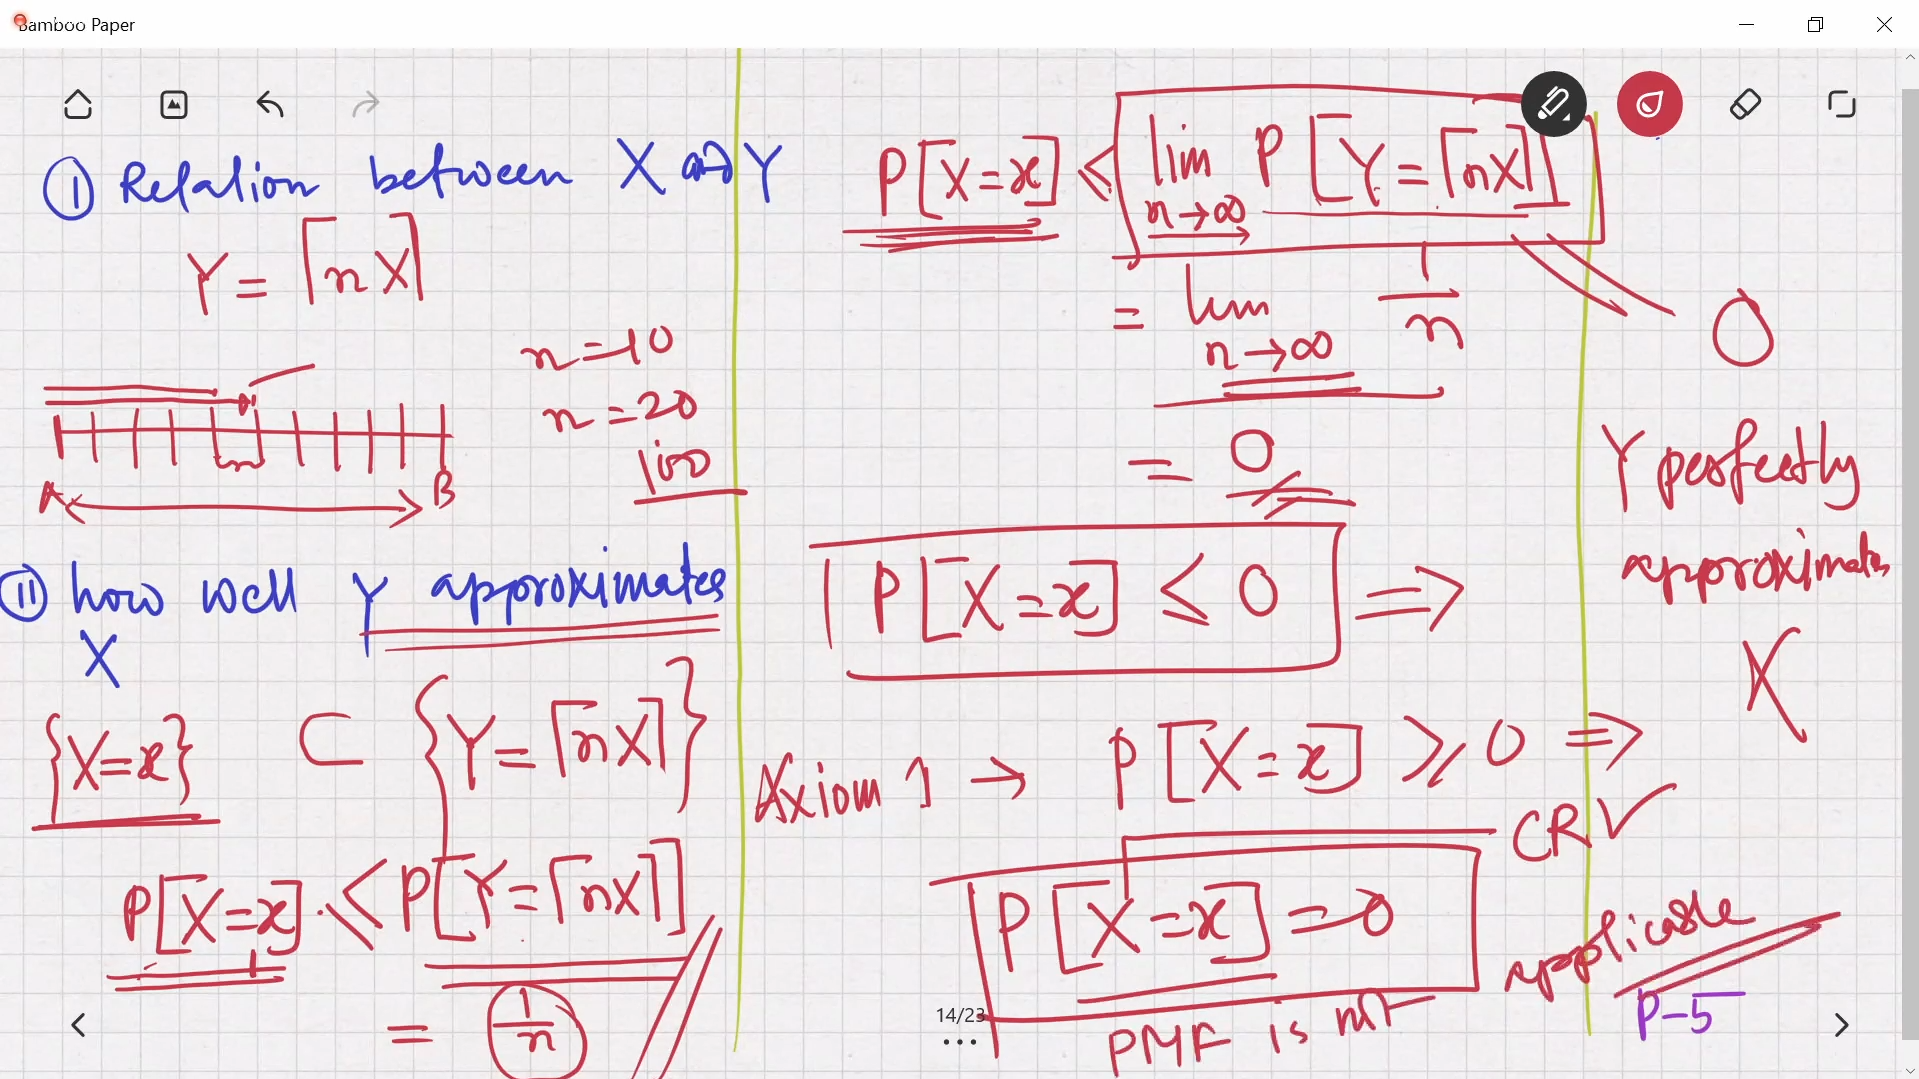 Bamboo Paper
① Relation between X and Y
Y = ⌈nX⌉
n = 10
n = 20
100
A B
② how well Y approximates
X
{X = x} ⊂ {Y = ⌈nX⌉}
P[X = x] ≤ P[Y = ⌈nX⌉]
= 1/n
P[X = x] ≤ lim n→∞ P[Y = ⌈nX⌉]
= lim n→∞ 1/n
= 0
P[X = x] ≤ 0 ⇒
Axiom 1 → P[X = x] ≥ 0 ⇒
P[X = x] = 0
PMF is not
applicable
0
Y perfectly
approximates
X
CRV ✓
P-5
14/23